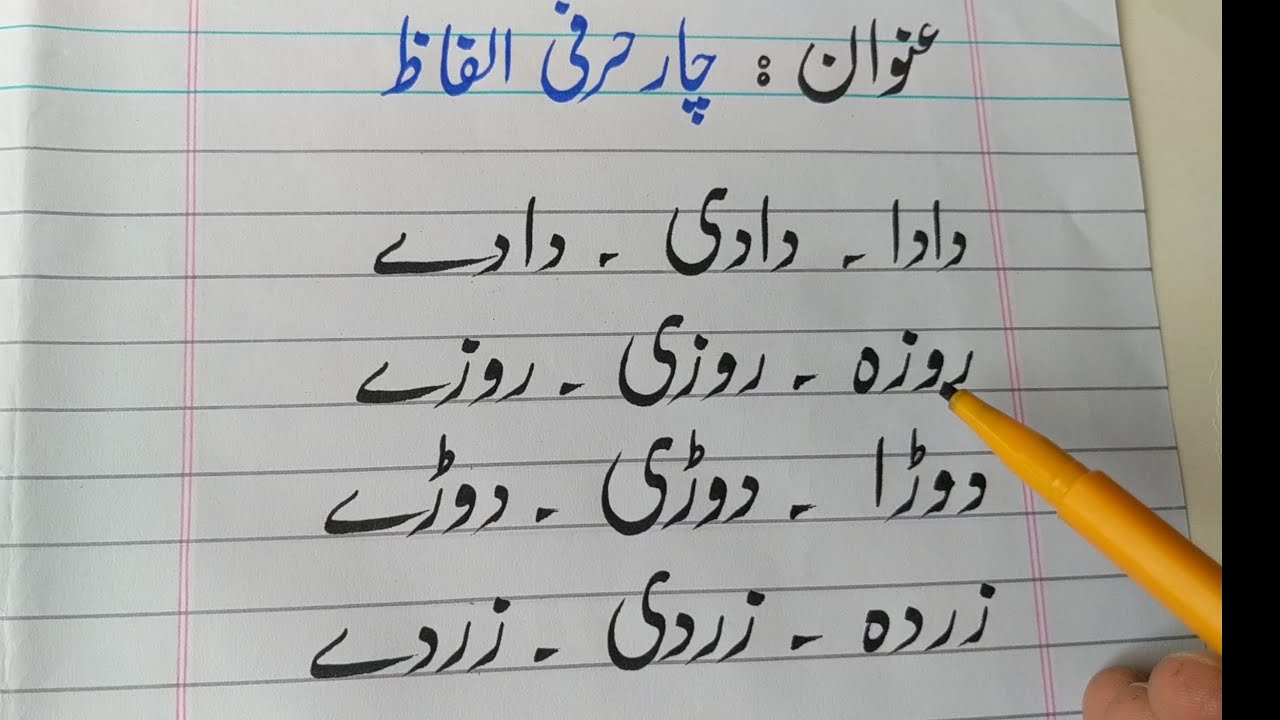 عنوان : چار حرفی الفاظ
دادا ۔ دادی ۔ دادے
روزہ ۔ روزی ۔ روزے
دوڑا ۔ دوڑی ۔ دوڑے
زردہ ۔ زردی ۔ زردے